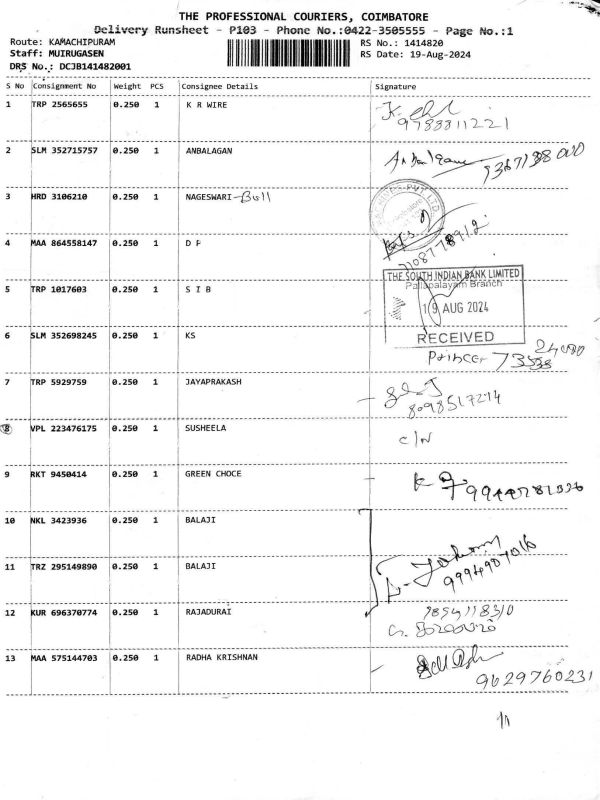 THE PROFESSIONAL COURIERS, COIMBATORE
Delivery Runsheet - P103 - Phone No.:0422-3505555 - Page No.:1
Route: KAMACHIPURAM
RS No.: 1414820
Staff: MUIRUGASEN
RS Date: 19-Aug-2024
DRS No.: DCJB141482001
S No Consignment No Weight PCS Consignee Details Signature
1 TRP 2565655 0.250 1 K R WIRE
9788811221
2 SLM 352715757 0.250 1 ANBALAGAN
3 HRD 3106210 0.250 1 NAGESWARI-Bell
4 MAA 864558147 0.250 1 D P
THE SOUTH INDIAN BANK LIMITED
Pallapalayam Branch
5 TRP 1017603 0.250 1 S I B
19 AUG 2024
RECEIVED
6 SLM 352698245 0.250 1 KS
7 TRP 5929759 0.250 1 JAYAPRAKASH
8098517214
8 VPL 223476175 0.250 1 SUSHEELA
C/N
9 RKT 9450414 0.250 1 GREEN CHOCE
10 NKL 3423936 0.250 1 BALAJI
11 TRZ 295149890 0.250 1 BALAJI
9994907016
12 KUR 696370774 0.250 1 RAJADURAI
13 MAA 575144703 0.250 1 RADHA KRISHNAN
9629760231